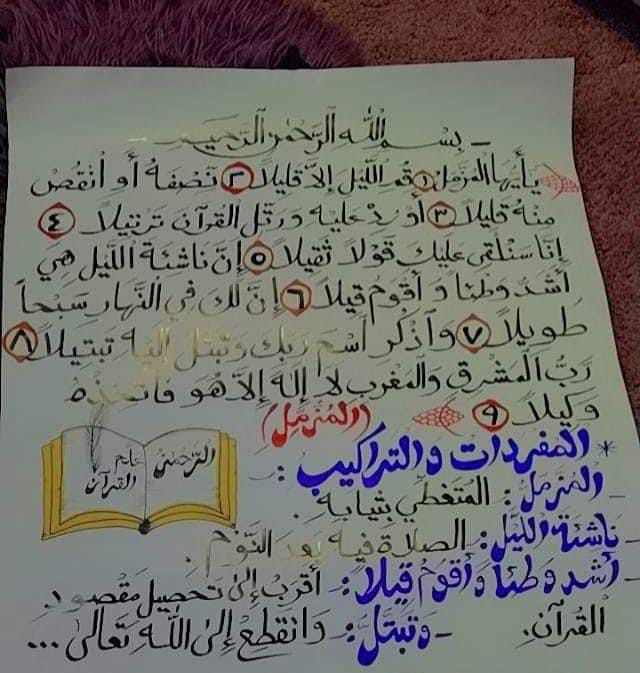 - بسم الله الرحمن الرحيم -
يأيها المزمل ١ قم الليل إلا قليلا ٢ نصفه أو انقص
منه قليلا ٣ أو زد عليه ورتل القرآن ترتيلا ٤
إنا سنلقي عليك قولا ثقيلا ٥ إن ناشئة الليل هي
أشد وطئا و أقوم قيلا ٦ إن لك في النهار سبحا
طويلا ٧ واذكر اسم ربك وتبتل إليه تبتيلا ٨
رب المشرق والمغرب لا إله إلا هو فاتخذه
وكيلا ٩ (المزمل)
* المفردات والتراكيب:
- المزمل: المتغطي بثيابه.
- ناشئة الليل: الصلاة فيه بعد النوم.
- أشد وطئا وأقوم قيلا: أقرب إلى تحصيل مقصود
القرآن. - وتبتل: وانقطع إلى الله تعالى ...
الرحمن
علم
القرآن